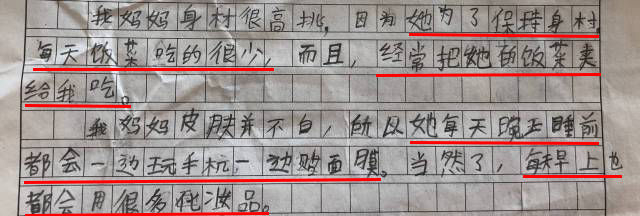 我妈妈身材很高挑，因为她为了保持身材，
每天饭菜吃的很少，而且，经常把她的饭菜夹
给我吃。
我妈妈皮肤并不白，所以她每天晚上睡前
都会一边玩手机，一边敷面膜。当然了，每早上也
都会用很多化妆品。